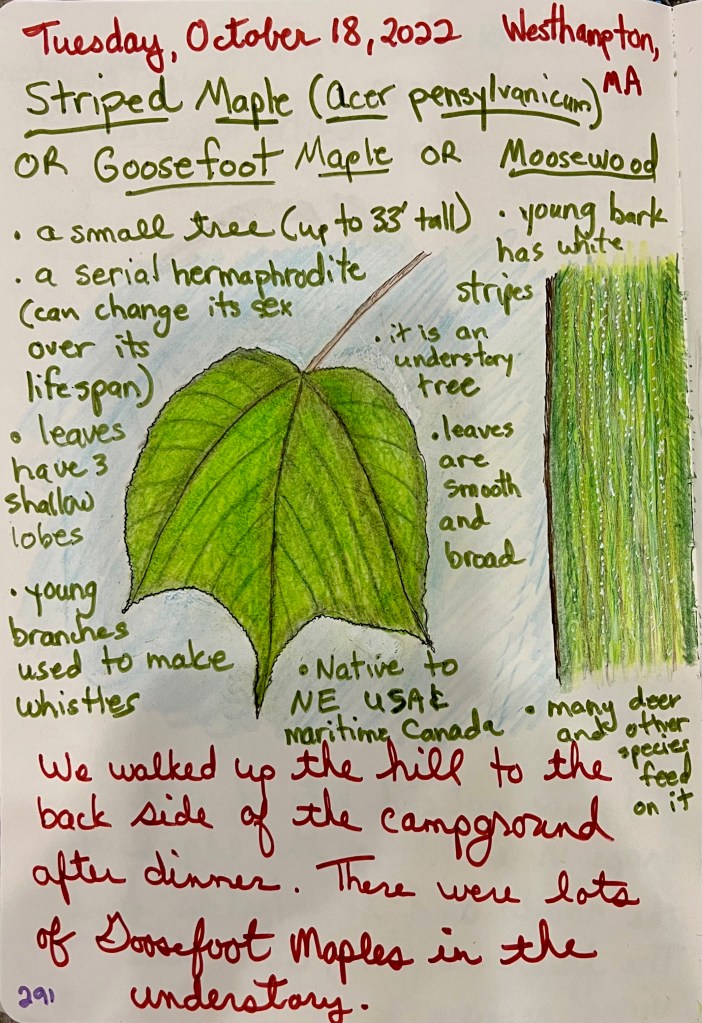 Tuesday, October 18, 2022 Westhampton, MA
Striped Maple (Acer pensylvanicum)
OR Goosefoot Maple OR Moosewood
• a small tree (up to 33' tall)
• a serial hermaphrodite
(can change its sex
over its
lifespan)
• leaves
have 3
shallow
lobes
• young
branches
used to make
whistles
• it is an
understory
tree
• leaves
are
smooth
and
broad
• Native to
NE USA &
maritime Canada
• young bark
has white
stripes
• many deer
and other
species
feed
on it
We walked up the hill to the
back side of the campground
after dinner. There were lots
of Goosefoot Maples in the
understory.
291